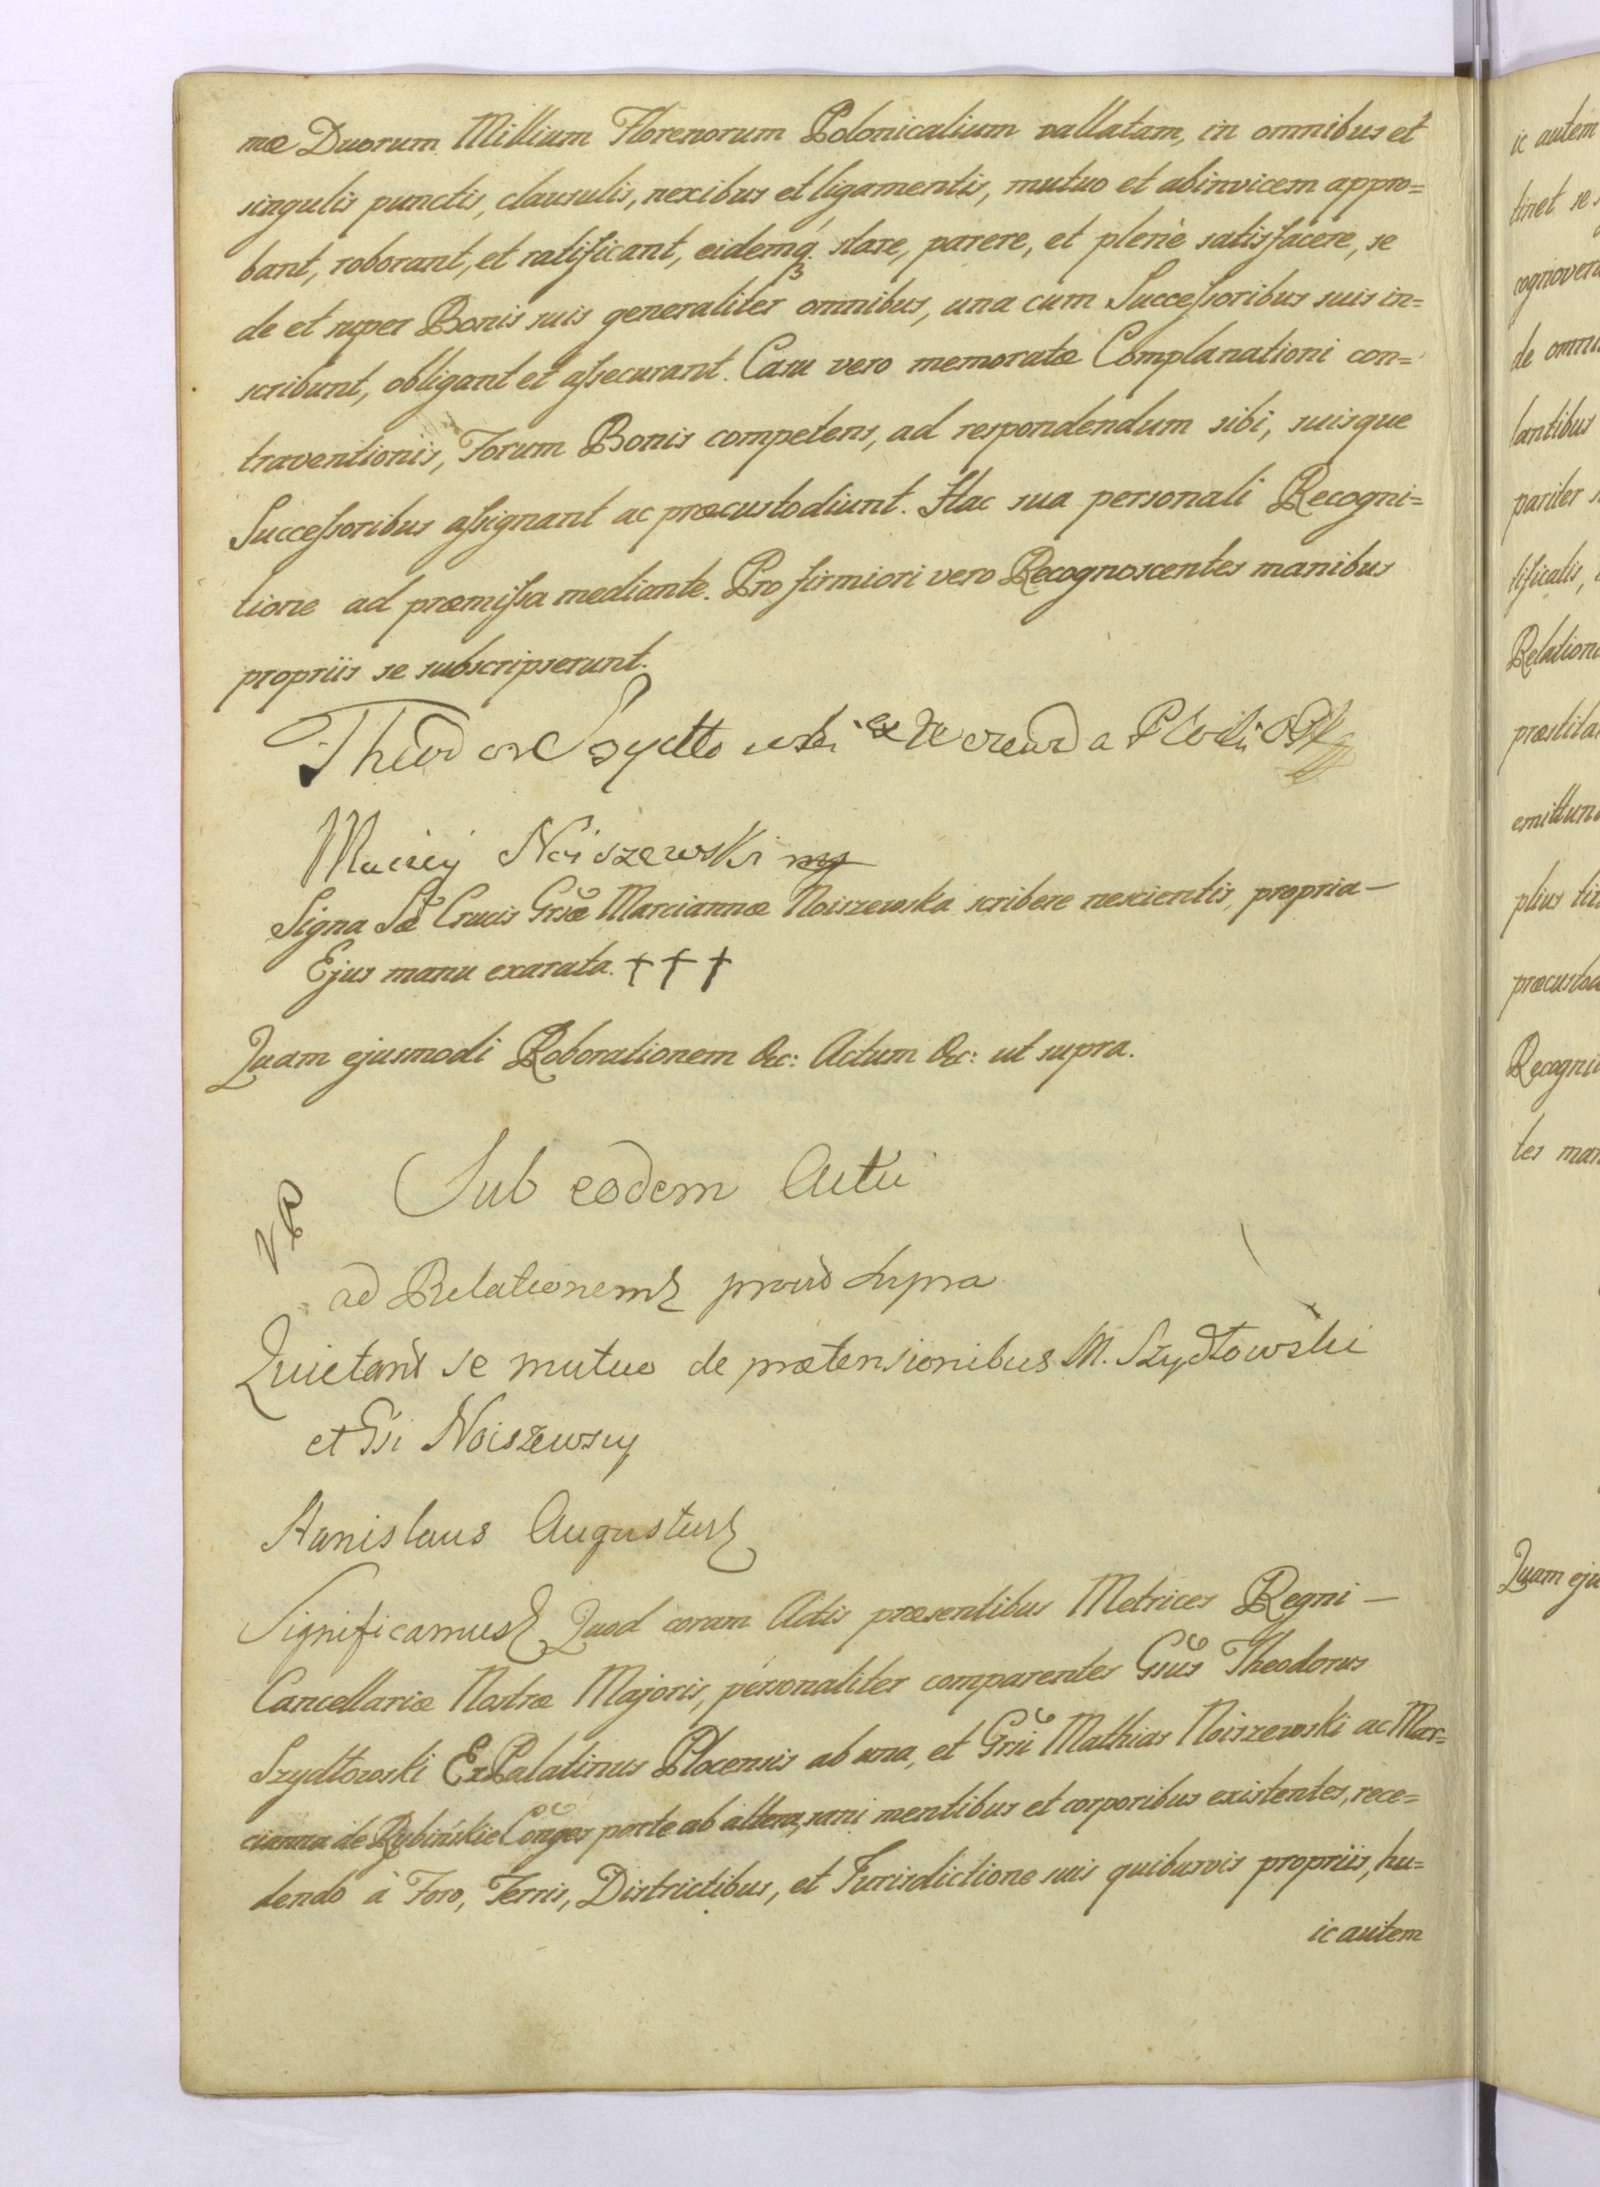 mæ Duorum Millium Florenorum Polonicalium vallatam, in omnibus et
singulis punctis, clausulis, nexibus et ligamentis, mutuo et abinvicem appro=
bant, roborant, et ratificant, eidemq́ꝫ stare, parere, et plenè satisfacere, se
de et super Bonis suis generaliter omnibus, una cum Successoribus suis in=
scribunt, obligant et assecurant. Casu vero memoratæ Complanationi con=
traventionis, Forum Bonis competens, ad respondendum sibi, suisque
Successoribus assignant ac præcustodiunt. Hac sua personali Recogni=
tione ad præmissa mediante. Pro firmiori vero Recognoscentes manibus
propriis se subscripserunt.
Theodor Szydłowski ex Woiewoda Płocki
Maciey Noiszewski mp
Signa Sæ Crucis Grsæ Marciannæ Noiszewska scribere nescientis, propria —
Ejus manu exarata. † † †
Quam ejusmodi Roborationem &c: Actum &c: ut supra.
Sub eodem Actu
ad Relationem prout Supra
Quietant se mutuo de prætensionibus M. Szydłowski
et Gsi Noiszewscy
Stanislaus Augustus
Significamus Quod coram Actis præsentibus Metrices Regni —
Cancellariæ Nostræ Majoris, personaliter comparentes Gsus Theodorus
Szydłowski ExPalatinus Plocensis ab una, et Grsi Mathias Noiszewski ac Mar=
cianna de Rybińskie Conges parte ab altera, sani mentibus et corporibus existentes, rece=
dendo à Foro, Terris, Districtibus, et Jurisdictione suis quibusvis propriis, hu=
ic autem
ic autem
tinet se
de omni
lantibus
pariter
tificatis,
Relation
præstita
emittun
plius
præcustod
Recogni
tes man
Quam eju